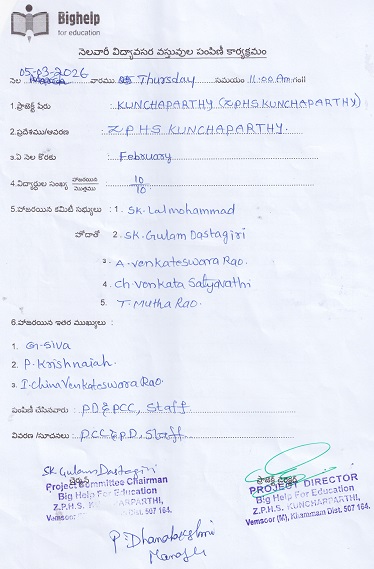 Bighelp
for education
నెలవారీ విద్యావసర వస్తువుల పంపిణీ కార్యక్రమం
05-03-2026
నెల వారము Thursday సమయం 11:00 Am గం||
1.ప్రాజెక్ట్ పేరు : KUNCHAPARTHY (Z.P.H.S KUNCHAPARTHY)
2.ప్రదేశము/ఆవరణ : Z.P.H.S KUNCHAPARTHY.
3.ఏ నెల కొరకు : February
4.విద్యార్థుల సంఖ్య హాజరయిన/మొత్తము : 10/10
5.హాజరయిన కమిటీ సభ్యులు : 1. SK. Lalmohammad
హోదాతో 2. SK. Gulam Dastagiri
3. A. Venkateswara Rao.
4. Ch Venkata Satyavathi
5. T. Mutha Rao.
6.హాజరయిన ఇతర ముఖ్యులు :
1. G. Siva
2. P. Krishnaiah.
3. I. China Venkateswara Rao.
పంపిణీ చేసినవారు : P.D & PCC, Staff
వివరణ /సూచనలు : P.CC & P.D, Staff
SK Gulam Dastagiri
Project Committee Chairman
Big Help For Education
Z.P.H.S. KUNCHARPARTHI,
Vemsoor (M), Khammam Dist. 507 164.
PROJECT DIRECTOR
Big Help For Education
Z.P.H.S. KUNCHARPARTHI,
Vemsoor (M), Khammam Dist. 507 164.
P. Dhanalakshmi